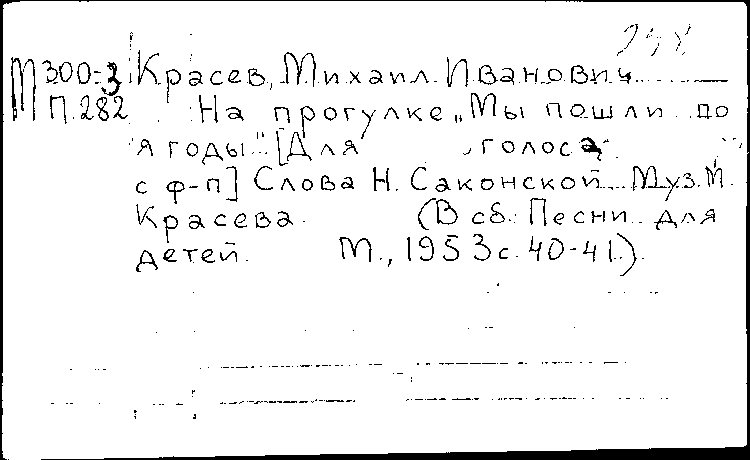 М300-3 Красев, Михаил Иванович
П282 На прогулке „Мы пошли по
ягоды" [Для голоса
с ф-п] Слова Н. Саконской Муз. М.
Красева. (В сб.: Песни для
детей. М., 1953 с. 40-41.).